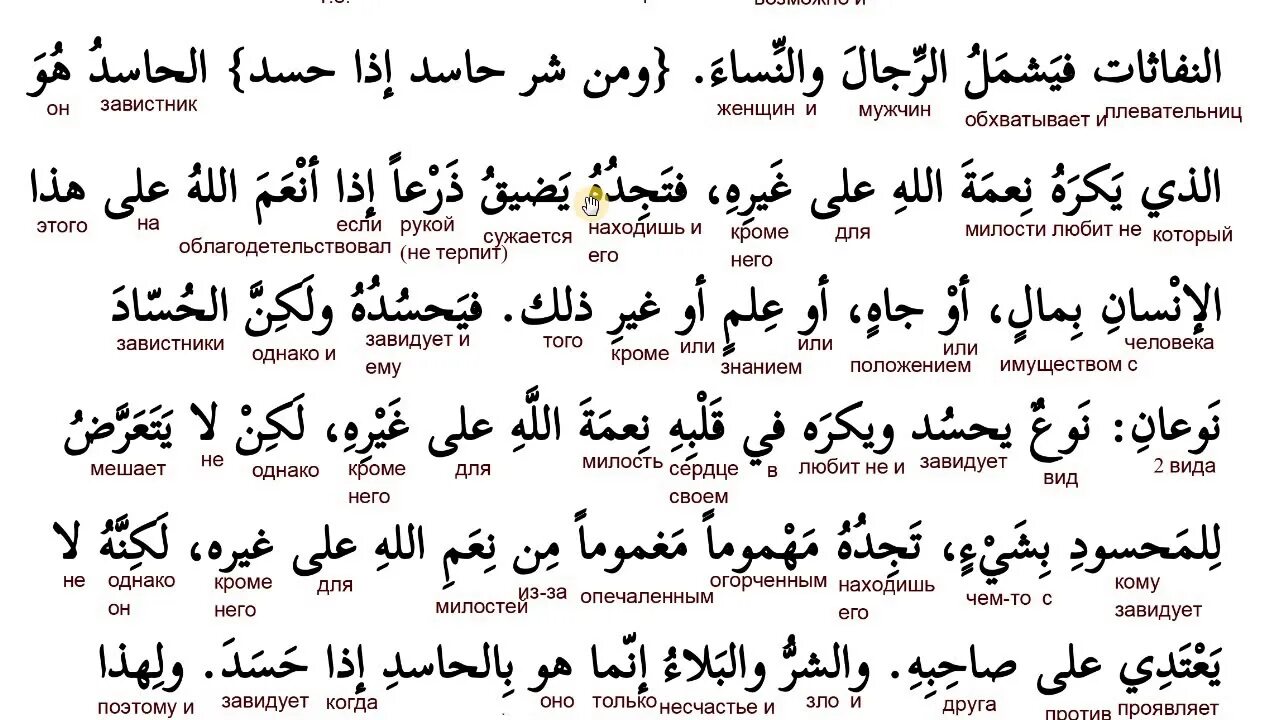 возможно и
النفاثات فيَشمَلُ الرِّجالَ والنِّساءَ. {ومن شر حاسد إذا حسد} الحاسدُ هُوَ
он завистник женщин и мужчин обхватывает и плевательниц
الذي يَكرَهُ نِعمَةَ اللهِ على غَيرِهِ، فتَجِدُهُ يَضيقُ ذَرْعاً إذا أنْعَمَ اللهُ على هذا
этого на облагодетельствовал если рукой сужается находишь и кроме для милости любит не который
(не терпит) его него
الإنْسانِ بِمالٍ، أوْ جاهٍ، أو عِلمٍ أو غيرِ ذلك. فيَحسُدُهُ ولَكِنَّ الحُسّادَ
завистники однако и завидует и того кроме или знанием или положением или имуществом с человека
ему
نَوعانِ: نَوعٌ يحسُد ويكرَه في قَلْبِهِ نِعمَةَ اللَّهِ على غَيْرِهِ، لَكِنْ لا يَتَعَرَّضُ
мешает не однако кроме для милость сердце в любит не и завидует вид 2 вида
него своем
لِلمَحسودِ بِشَيْءٍ، تَجِدُهُ مَهْموماً مَغموماً مِن نِعَمِ اللهِ على غيره، لَكِنَّهُ لا
не однако кроме для милостей из-за опечаленным огорченным находишь чем-то с кому
он него его завидует
يَعْتَدِي على صاحِبِهِ. والشرُّ والبَلاءُ إنّما هو بِالحاسدِ إذا حَسَدَ. ولِهذا
поэтому и завидует когда оно только несчастье и зло и друга против проявляет